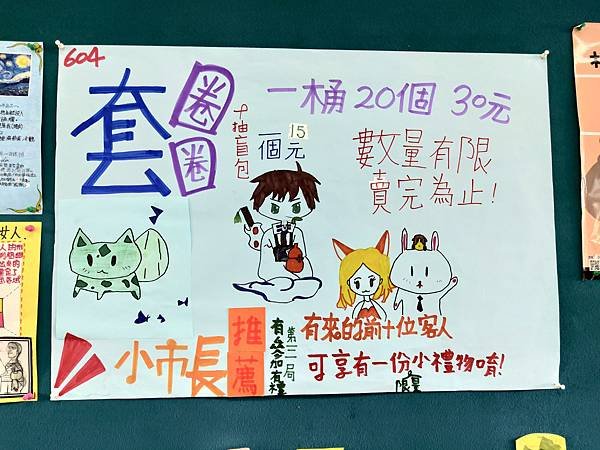 604
套圈圈
+抽盲包
一個15元
一桶20個 30元
數量有限
賣完為止!
小市長推薦
有參加有禮
第二局
有來的前十位客人
可享有一份小禮物唷!